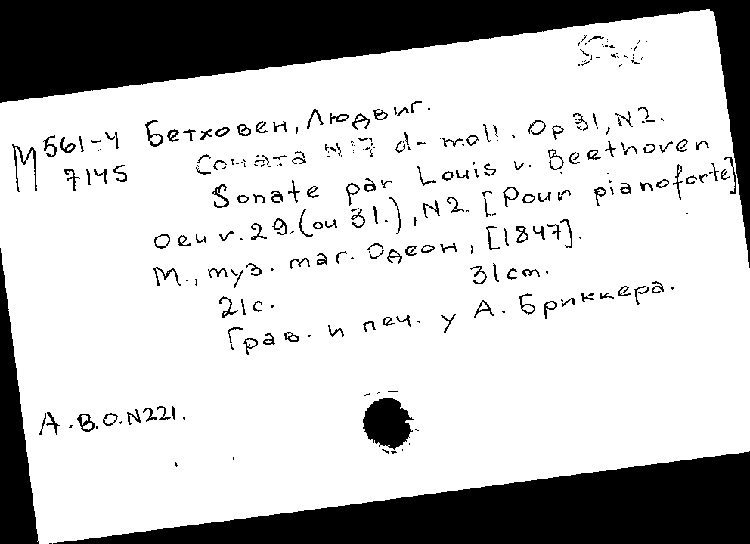 M 561-4 Бетховен, Людвиг.
7145 Соната N17 d-moll. Op 31, N2.
Sonate par Louis v. Beethoven
Oeuv. 29. (ou 31.), N2. [Pour pianoforte]
М., муз. маг. Одеон, [1847].
21с. 31cm.
Грав. и печ. у А. Бриккера.
А.В.О.N221.